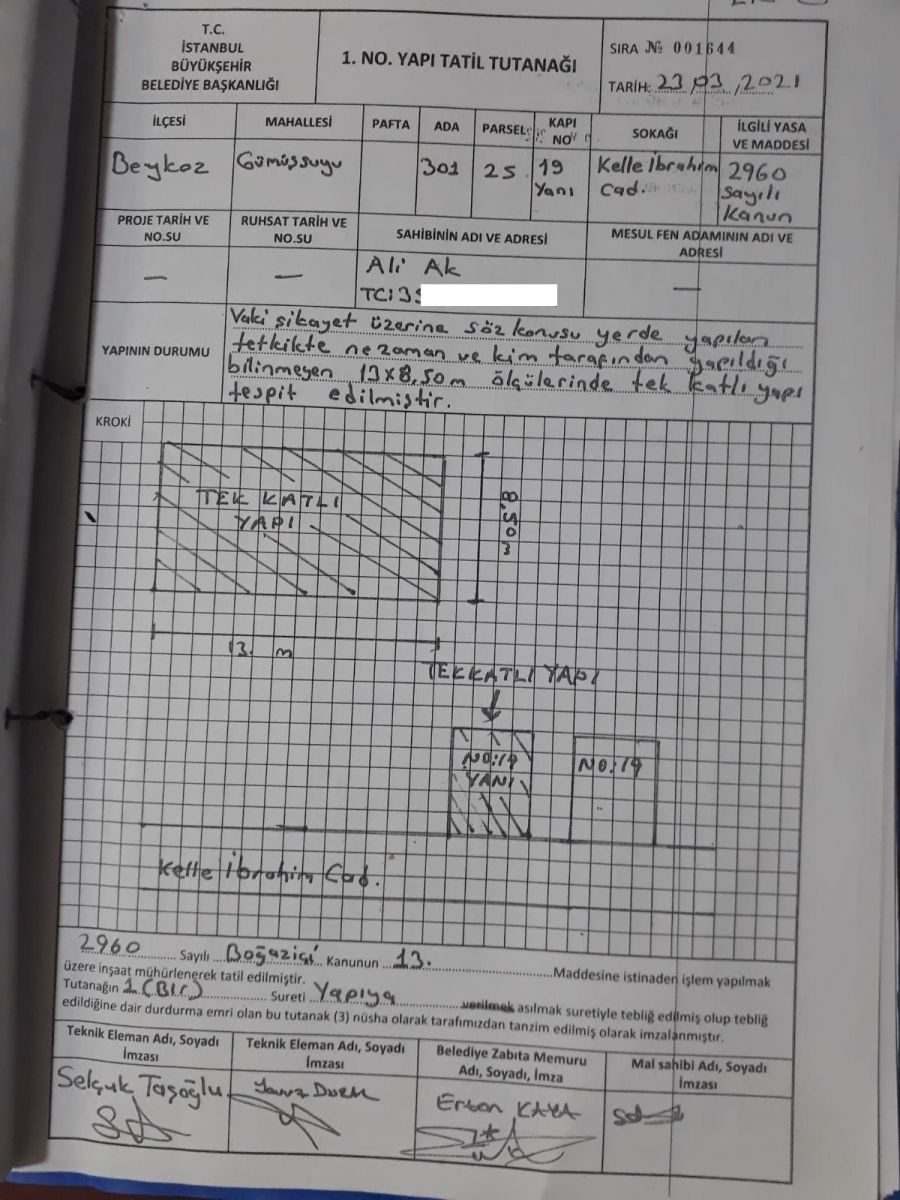 T.C.
İSTANBUL
BÜYÜKŞEHİR
BELEDİYE BAŞKANLIĞI
1. NO. YAPI TATİL TUTANAĞI
SIRA № 001644
TARİH: 23,03,2021
İLÇESİ MAHALLESİ PAFTA ADA PARSEL KAPI NO SOKAĞI İLGİLİ YASA VE MADDESİ
Beykoz Gümüşsuyu 301 25 19 Yanı Kelle İbrahim Cad. 2960 Sayılı Kanun
PROJE TARİH VE NO.SU RUHSAT TARİH VE NO.SU SAHİBİNİN ADI VE ADRESİ MESUL FEN ADAMININ ADI VE ADRESİ
— — Ali Ak —
TC:
YAPININ DURUMU
Vaki şikayet üzerine söz konusu yerde yapılan
tetkikte ne zaman ve kim tarafından yapıldığı
bilinmeyen 13x8,50m ölçülerinde tek katlı yapı
tespit edilmiştir.
KROKİ
TEK KATLI
YAPI
8.50
13. m
TEK KATLI YAPI
NO:19
YANI
NO:19
Kelle İbrahim Cad.
2960 Sayılı Boğaziçi Kanunun 13. Maddesine istinaden işlem yapılmak
üzere inşaat mühürlenerek tatil edilmiştir.
Tutanağın 1 (Bir) Sureti Yapıya verilmek asılmak suretiyle tebliğ edilmiş olup tebliğ
edildiğine dair durdurma emri olan bu tutanak (3) nüsha olarak tarafımızdan tanzim edilmiş olarak imzalanmıştır.
Teknik Eleman Adı, Soyadı İmzası
Teknik Eleman Adı, Soyadı İmzası
Belediye Zabıta Memuru Adı, Soyadı, İmza
Mal sahibi Adı, Soyadı İmzası
Selçuk Taşoğlu
KAYA